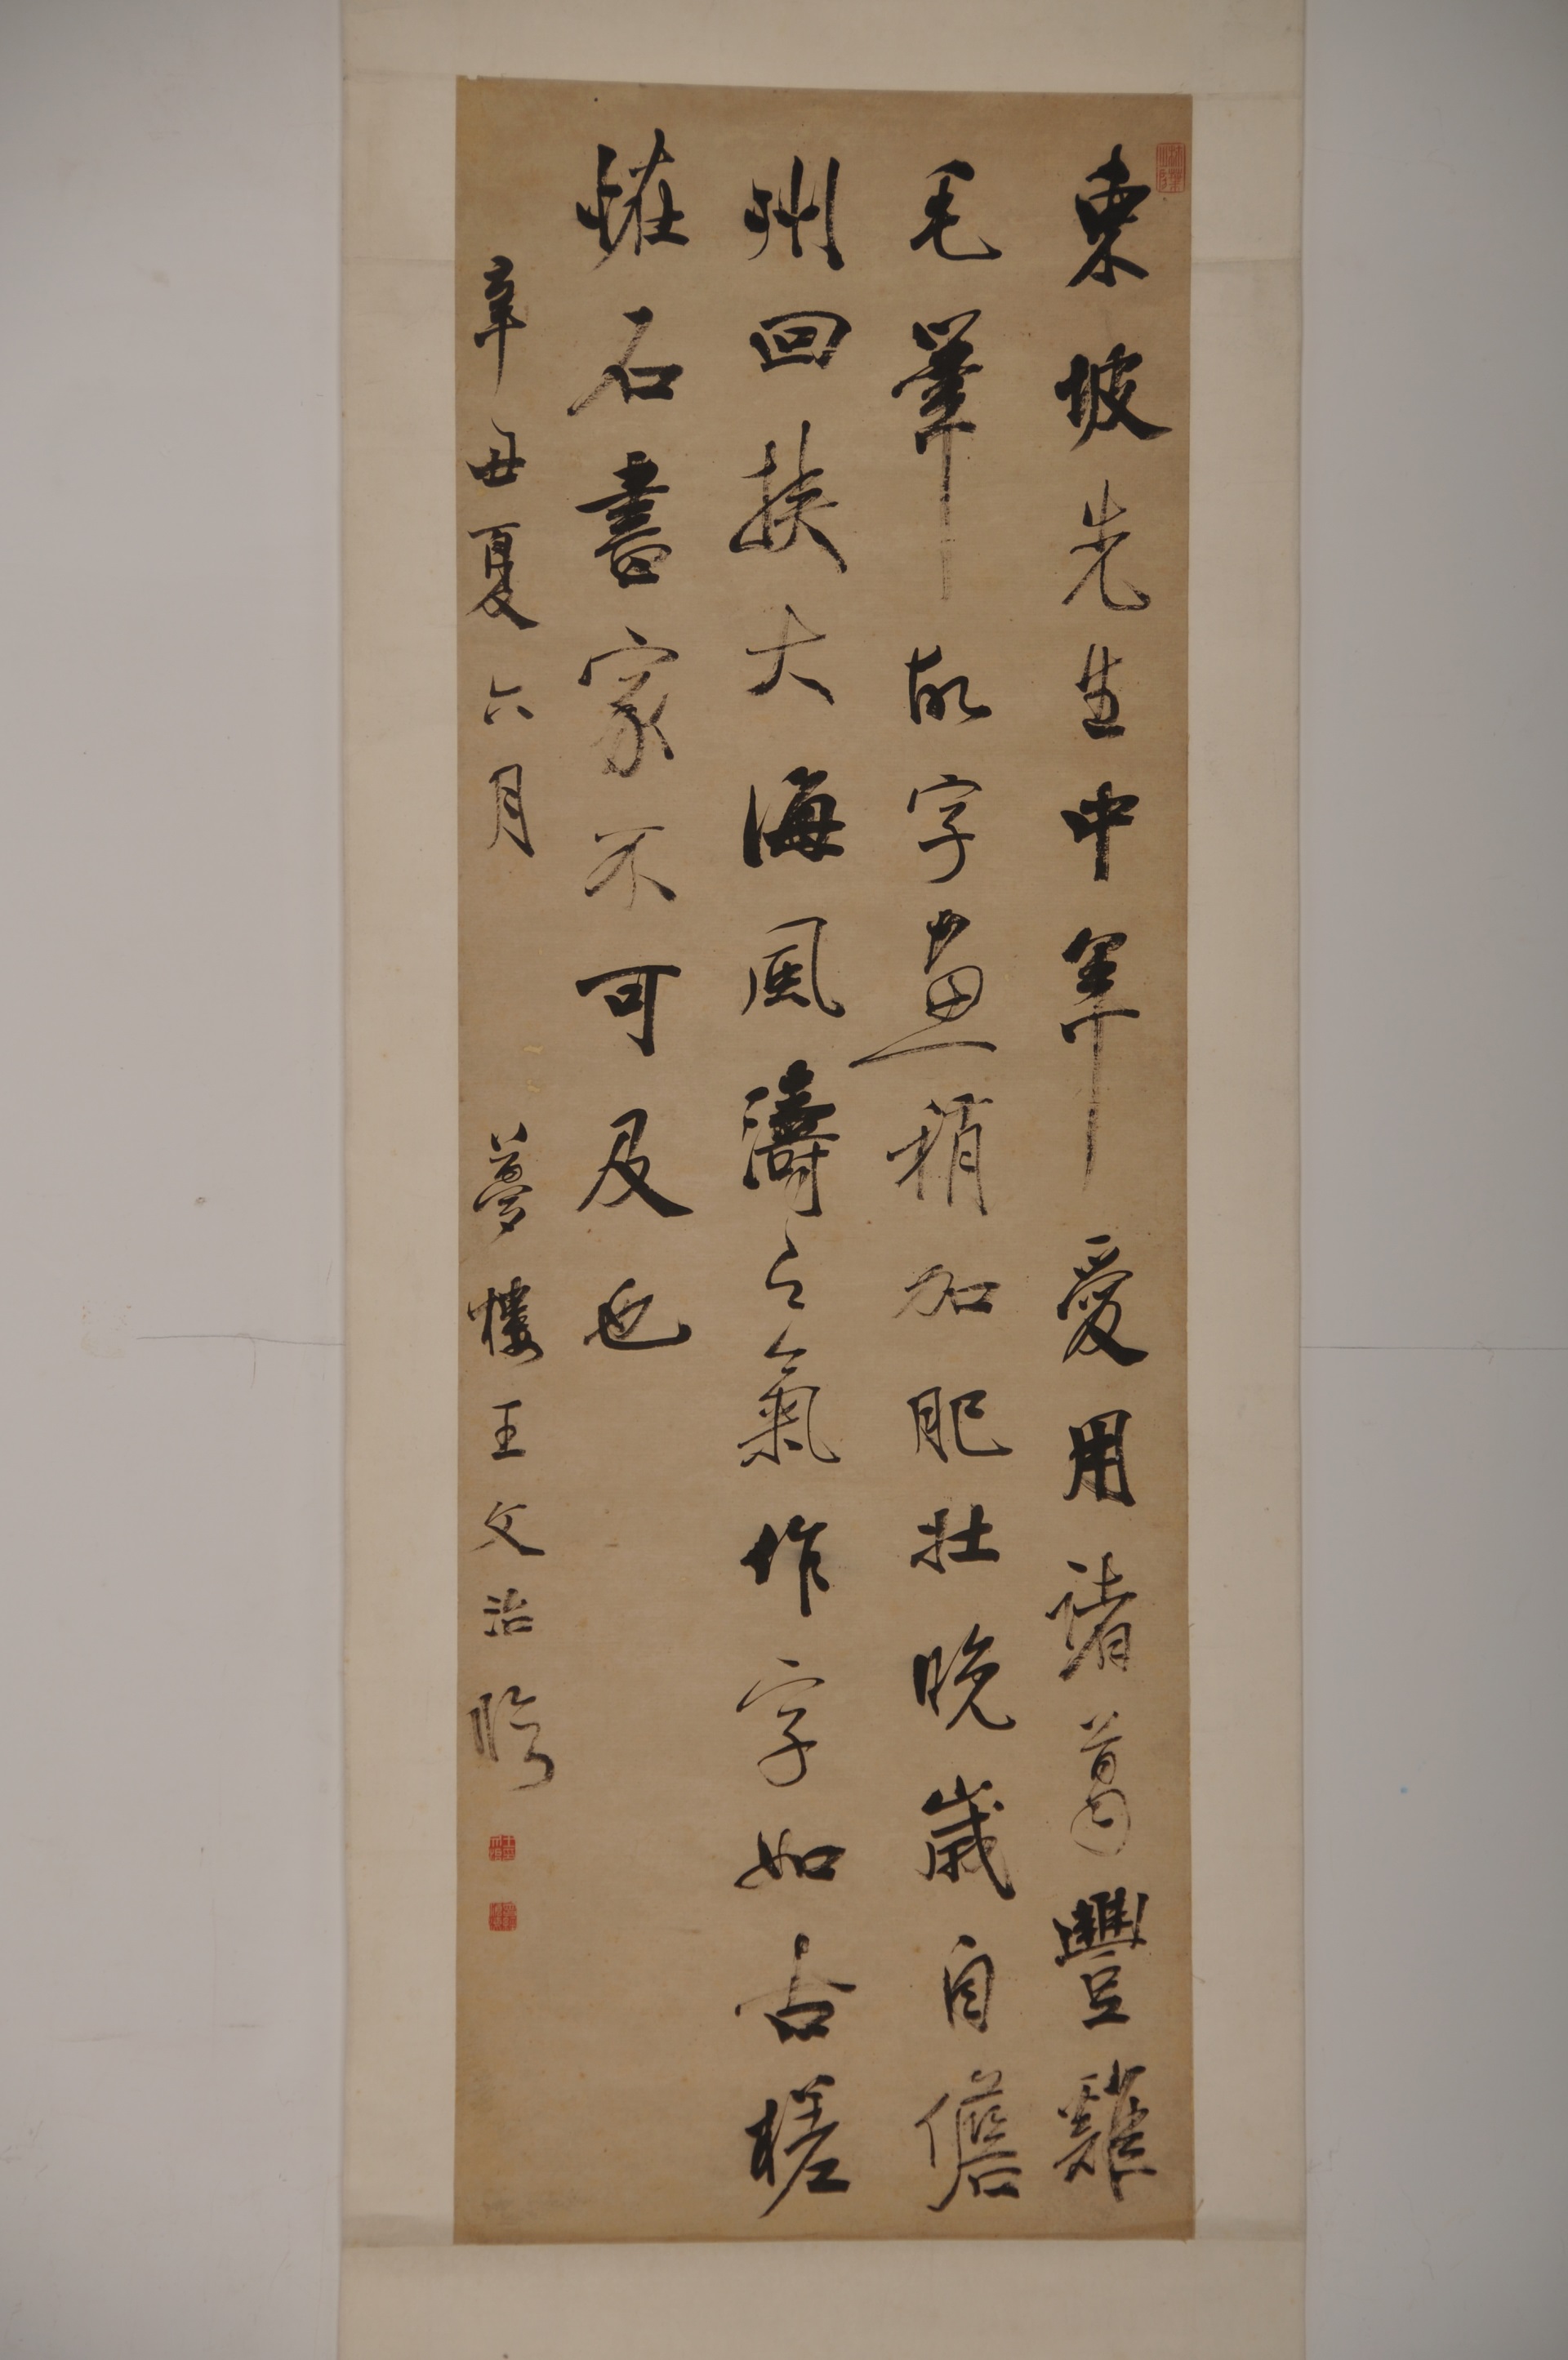 東坡先生中年愛用諸葛豐雞
毛筆故字畫稍加肥壯晚歲自儋
州回挾大海風濤之氣作字如古槎
恠石書家不可及也
辛丑夏六月 夢樓王文治臨